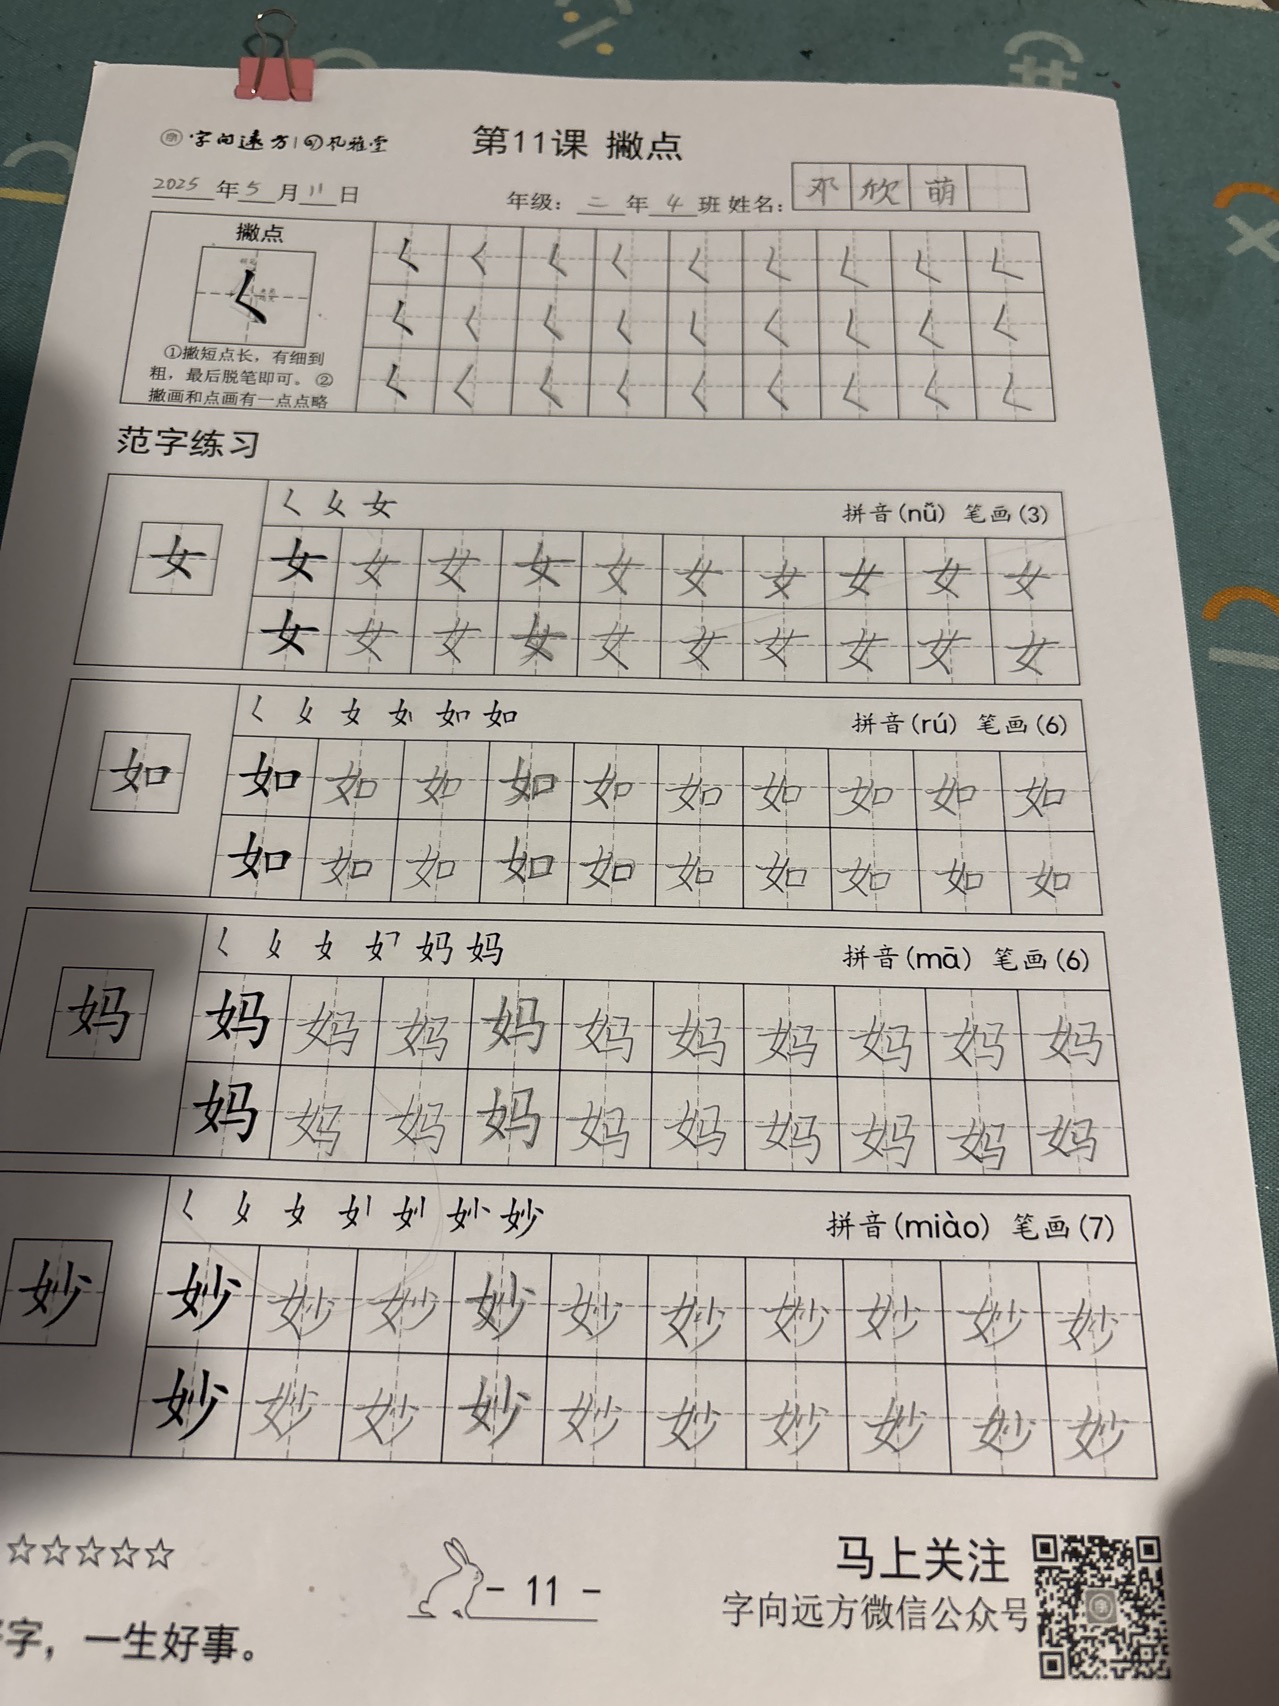 字向远方 风雅堂
第11课 撇点
2025年5月11日 年级：二年4班 姓名：邓欣萌
撇点
①撇短点长，有细到
粗，最后脱笔即可。②
撇画和点画有一点点略
𡿨 𡿨 𡿨 𡿨 𡿨 𡿨 𡿨 𡿨 𡿨
𡿨 𡿨 𡿨 𡿨 𡿨 𡿨 𡿨 𡿨 𡿨
𡿨 𡿨 𡿨 𡿨 𡿨 𡿨 𡿨 𡿨 𡿨
范字练习
女 拼音(nǚ) 笔画(3)
女
女 女 女 女 女 女 女 女 女 女
女 女 女 女 女 女 女 女 女 女
如 拼音(rú) 笔画(6)
如
如 如 如 如 如 如 如 如 如 如
如 如 如 如 如 如 如 如 如 如
妈 拼音(mā) 笔画(6)
妈
妈 妈 妈 妈 妈 妈 妈 妈 妈 妈
妈 妈 妈 妈 妈 妈 妈 妈 妈 妈
妙 拼音(miào) 笔画(7)
妙
妙 妙 妙 妙 妙 妙 妙 妙 妙 妙
妙 妙 妙 妙 妙 妙 妙 妙 妙 妙
☆☆☆☆☆
- 11 -
马上关注
字向远方微信公众号
字，一生好事。